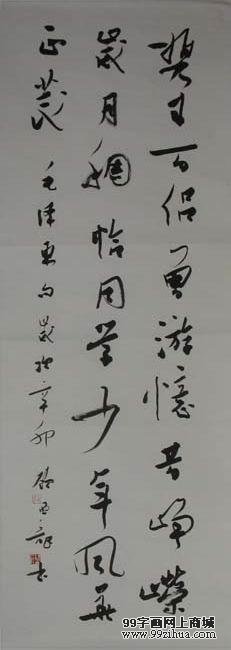 携来百侣曾游憶昔峥嵘
歲月稠恰同学少年风华
正茂 毛泽东句歲次辛卯 书
99字画网上商城
www.99zihua.com